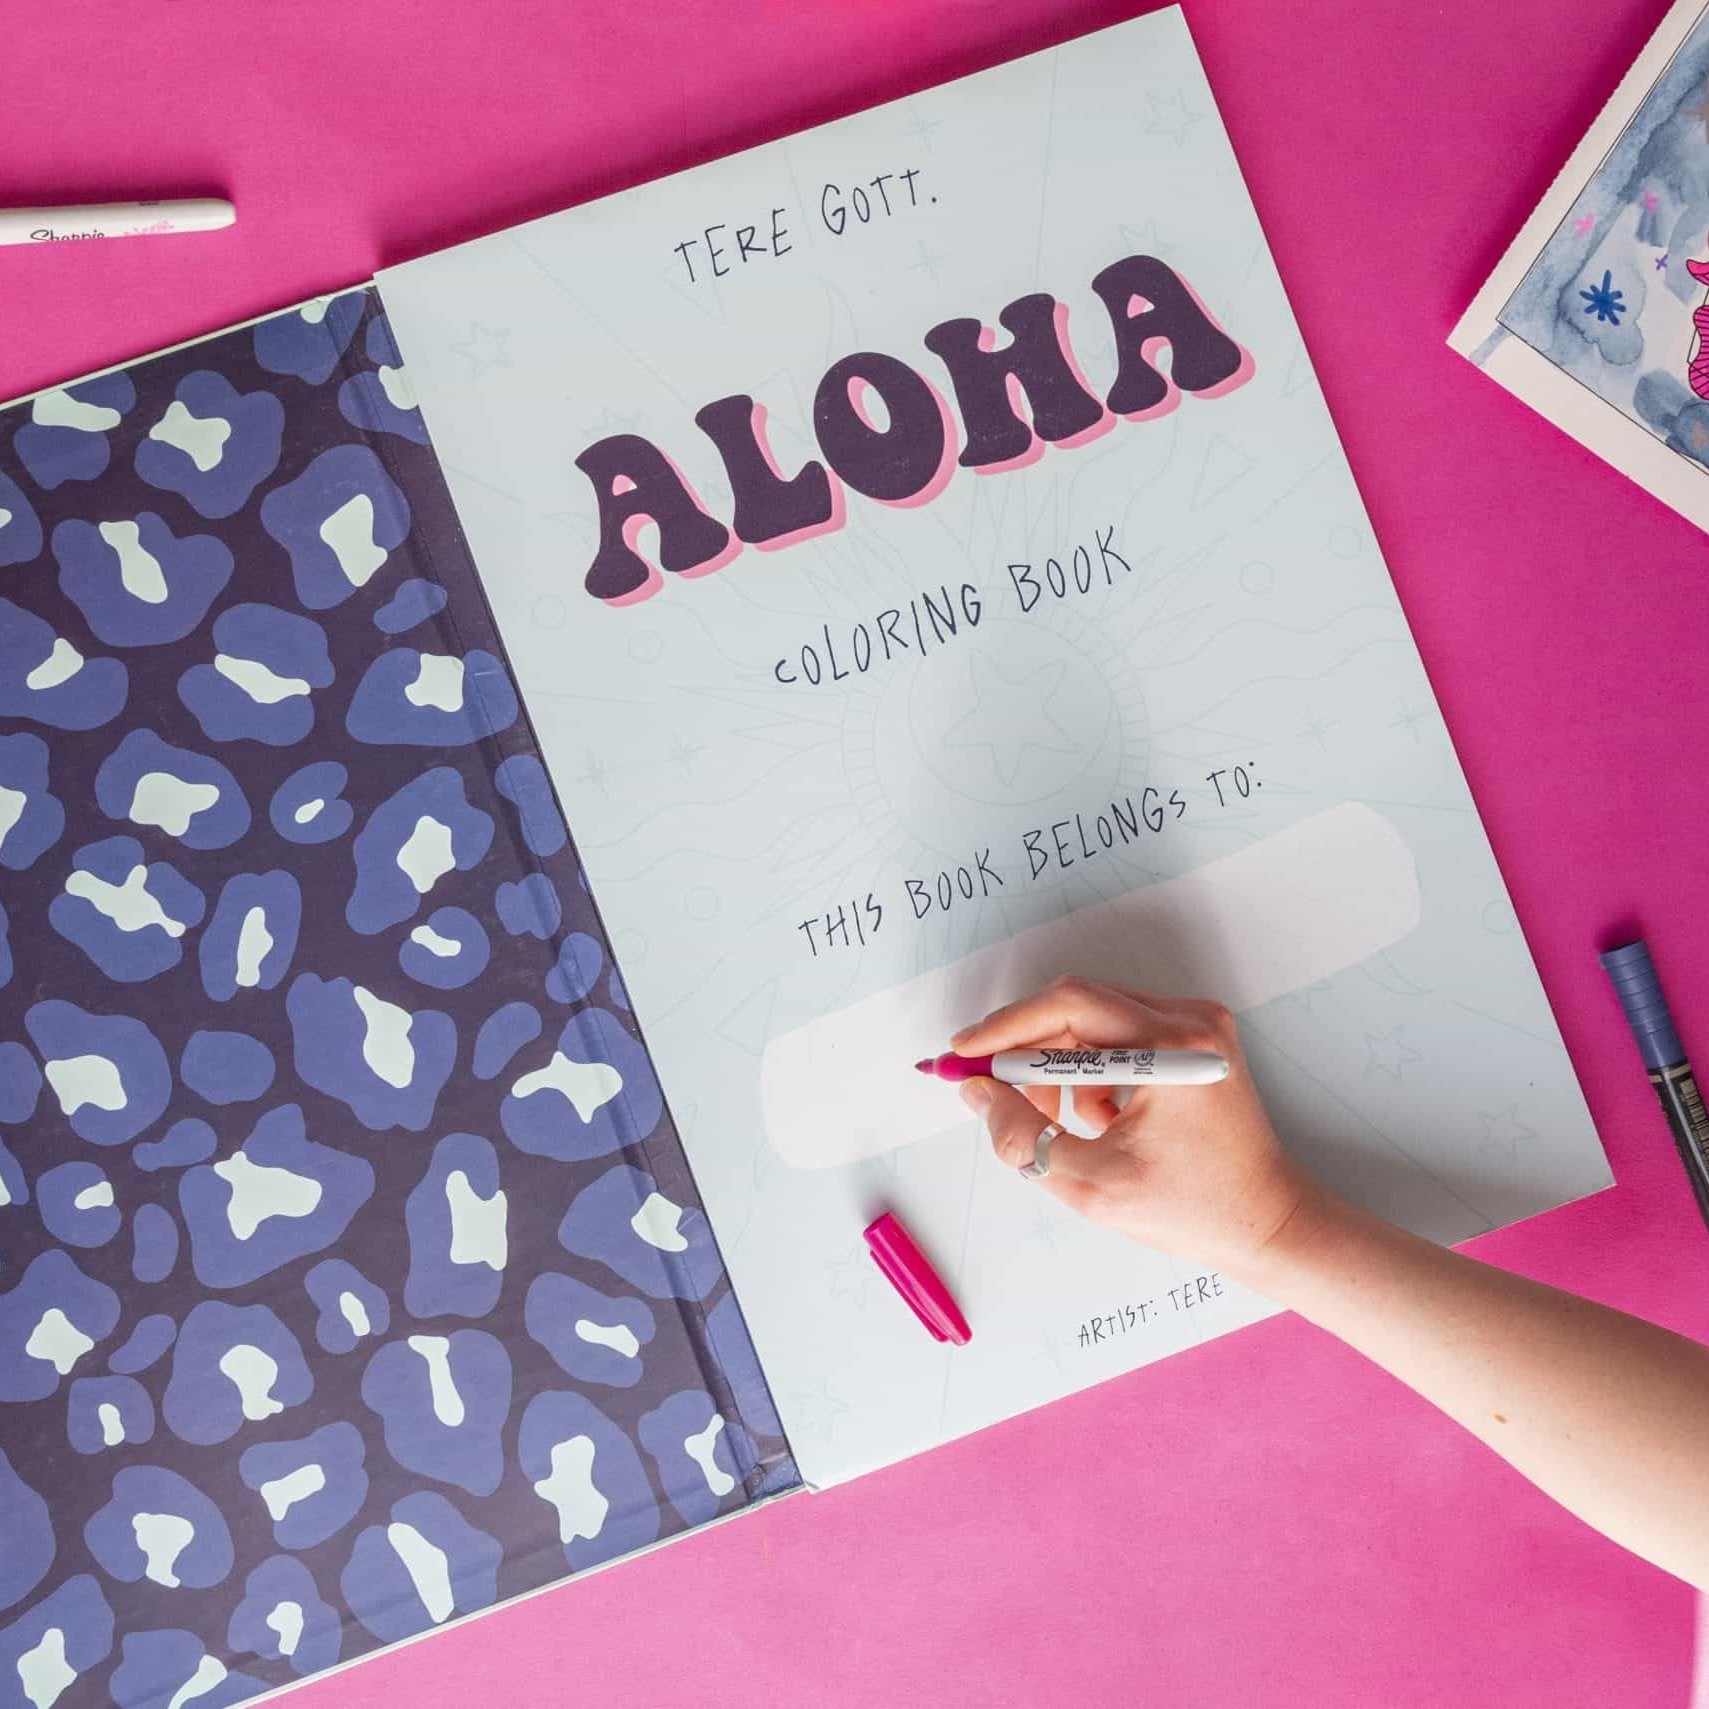 TERE GOTT.
ALOHA
COLORING BOOK
THIS BOOK BELONGS TO:
Sharpie
Sharpie. FINE POINT AP
Permanent Marker
ARTIST: TERE